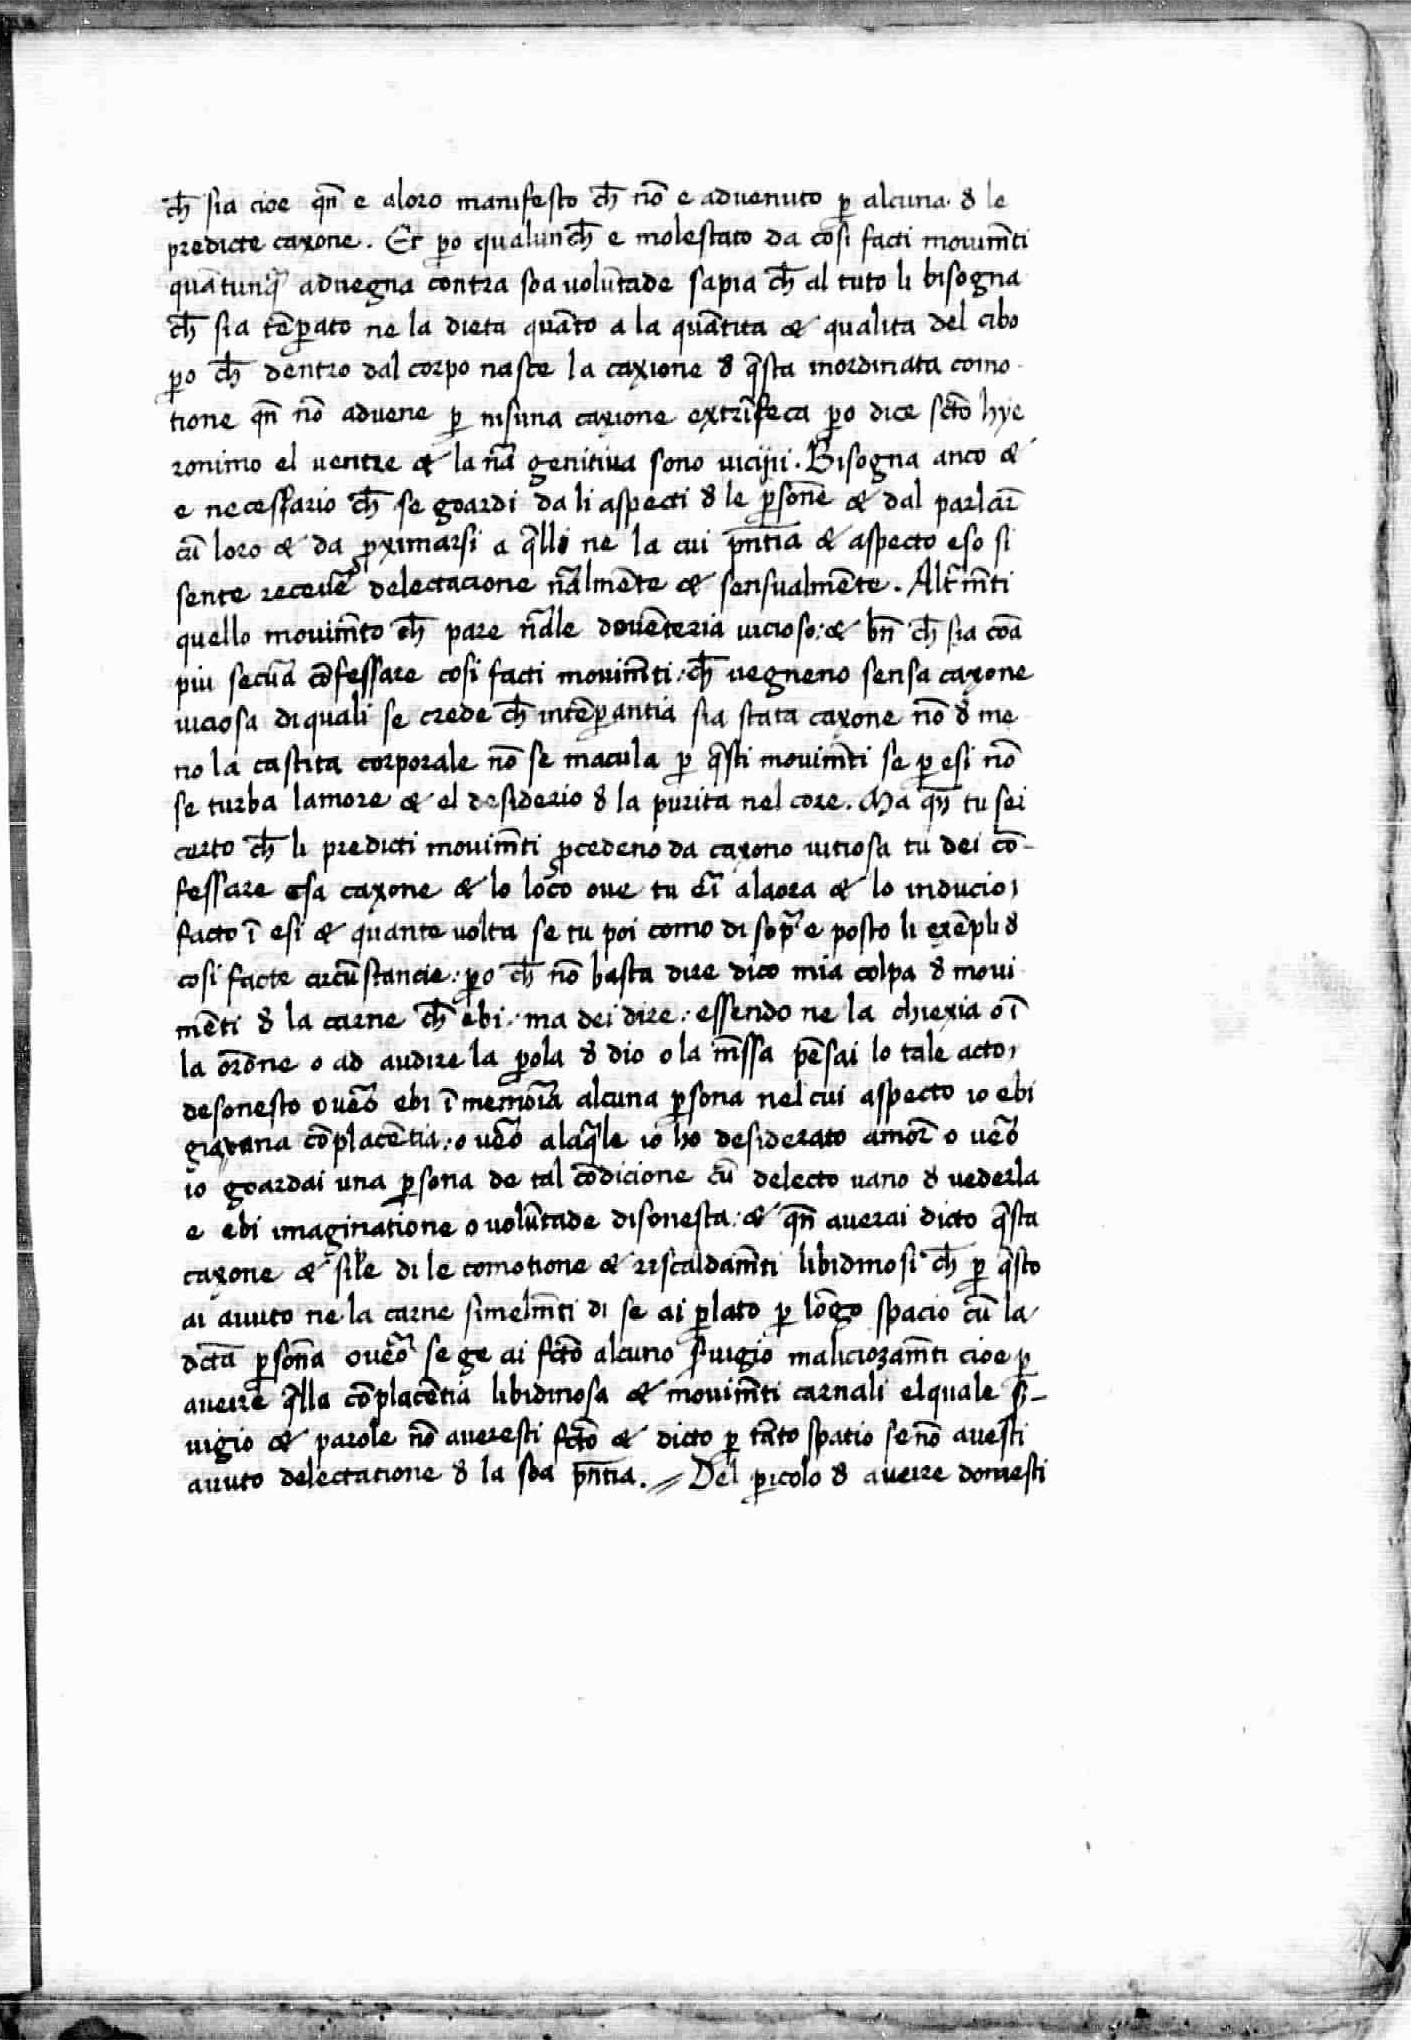 ch̄ sia cioe qn̄ e aloro manifesto ch̄ nō e advenuto ꝑ alcuna. d le
predicte caxone. Et ꝑo qualunch̄ e molestato da cosi facti movim̄ti
quātunqꝫ advegna contra soa volūtade sapia ch̄ al tuto li bisogna
ch̄ sia tēꝑato ne la dieta quāto a la quātita & qualita del cibo
ꝑo ch̄ dentro dal corpo nasce la caxione d q̄sta inordinata como-
tione qn̄ nō advene ꝑ nisuna caxione extrīseca ꝑo dice sc̄to hye
ronimo el ventre & la nā genitiva sono vicijii. Bisogna anco &
e necessario ch̄ se goardi da li aspecti d le ꝑsone & dal parlar̄
cū loro & da ꝓximarsi a q̄lli ne la cui pn̄tia & aspecto eso si
sente recever̄ delectacione nāalmēte & sensualmēte. Altrim̄ti
quello movim̄to ch̄ pare nāale dovēteria vicioso: & bn̄ ch̄ sia coā
piu secura cōfessare cosi facti movim̄ti: ch̄ vegneno sensa caxone
viciosa di quali se crede ch̄ intēꝑantia sia stata caxone nō d me
no la castita corporale nō se macula ꝑ q̄sti movim̄ti se ꝑ esi nō
se turba lamore & el desiderio d la purita nel core. Ma qn̄ tu sei
certo ch̄ li predicti movim̄ti ꝓcedeno da caxono vitiosa tu dei cō-
fessare esa caxone & lo loco ove tu eri alaora & lo inducio,
facto ī esi & quante volta se tu poi como di sopra e posto li exēpli d
cosi facte circūstancie: ꝑo ch̄ nō basta dire dico mia colpa d movi
mēti d la carne ch̄ ebi: ma dei dire: essendo ne la chiexia o ī
la ordne o ad audire la ꝑola d dio o la m̄ssa pēsai lo tale acto,
desonesto overo ebi ī memoria alcuna ꝑsona nel cui aspecto io ebi
cōplacētia: o vero alaq̄le io ho desiderato amor̄ o vero
io goardai una ꝑsona de tal cōdicione cū delecto vano d vederla
e ebi imaginatione o volūtade disonesta: & qn̄ averai dicto q̄sta
caxone & sil̄e di le comotione & riscaldam̄ti libidinosi ch̄ ꝑ q̄sto
ai avuto ne la carne simelm̄ti di se ai ꝑlato ꝑ lōgo spacio cū la
dc̄ta ꝑsona overo se ge ai fc̄to alcuno s̄vigio maliciozam̄ti cioe ꝑ
aveire q̄lla cōplacētia libidinosa & movim̄ti carnali elquale s̄-
vigio & parole nō averesti fc̄to & dicto ꝑ tāto spatio se nō avesti
avuto delectatione d la soa pn̄tia. // Del ꝑicolo d aveire domesti